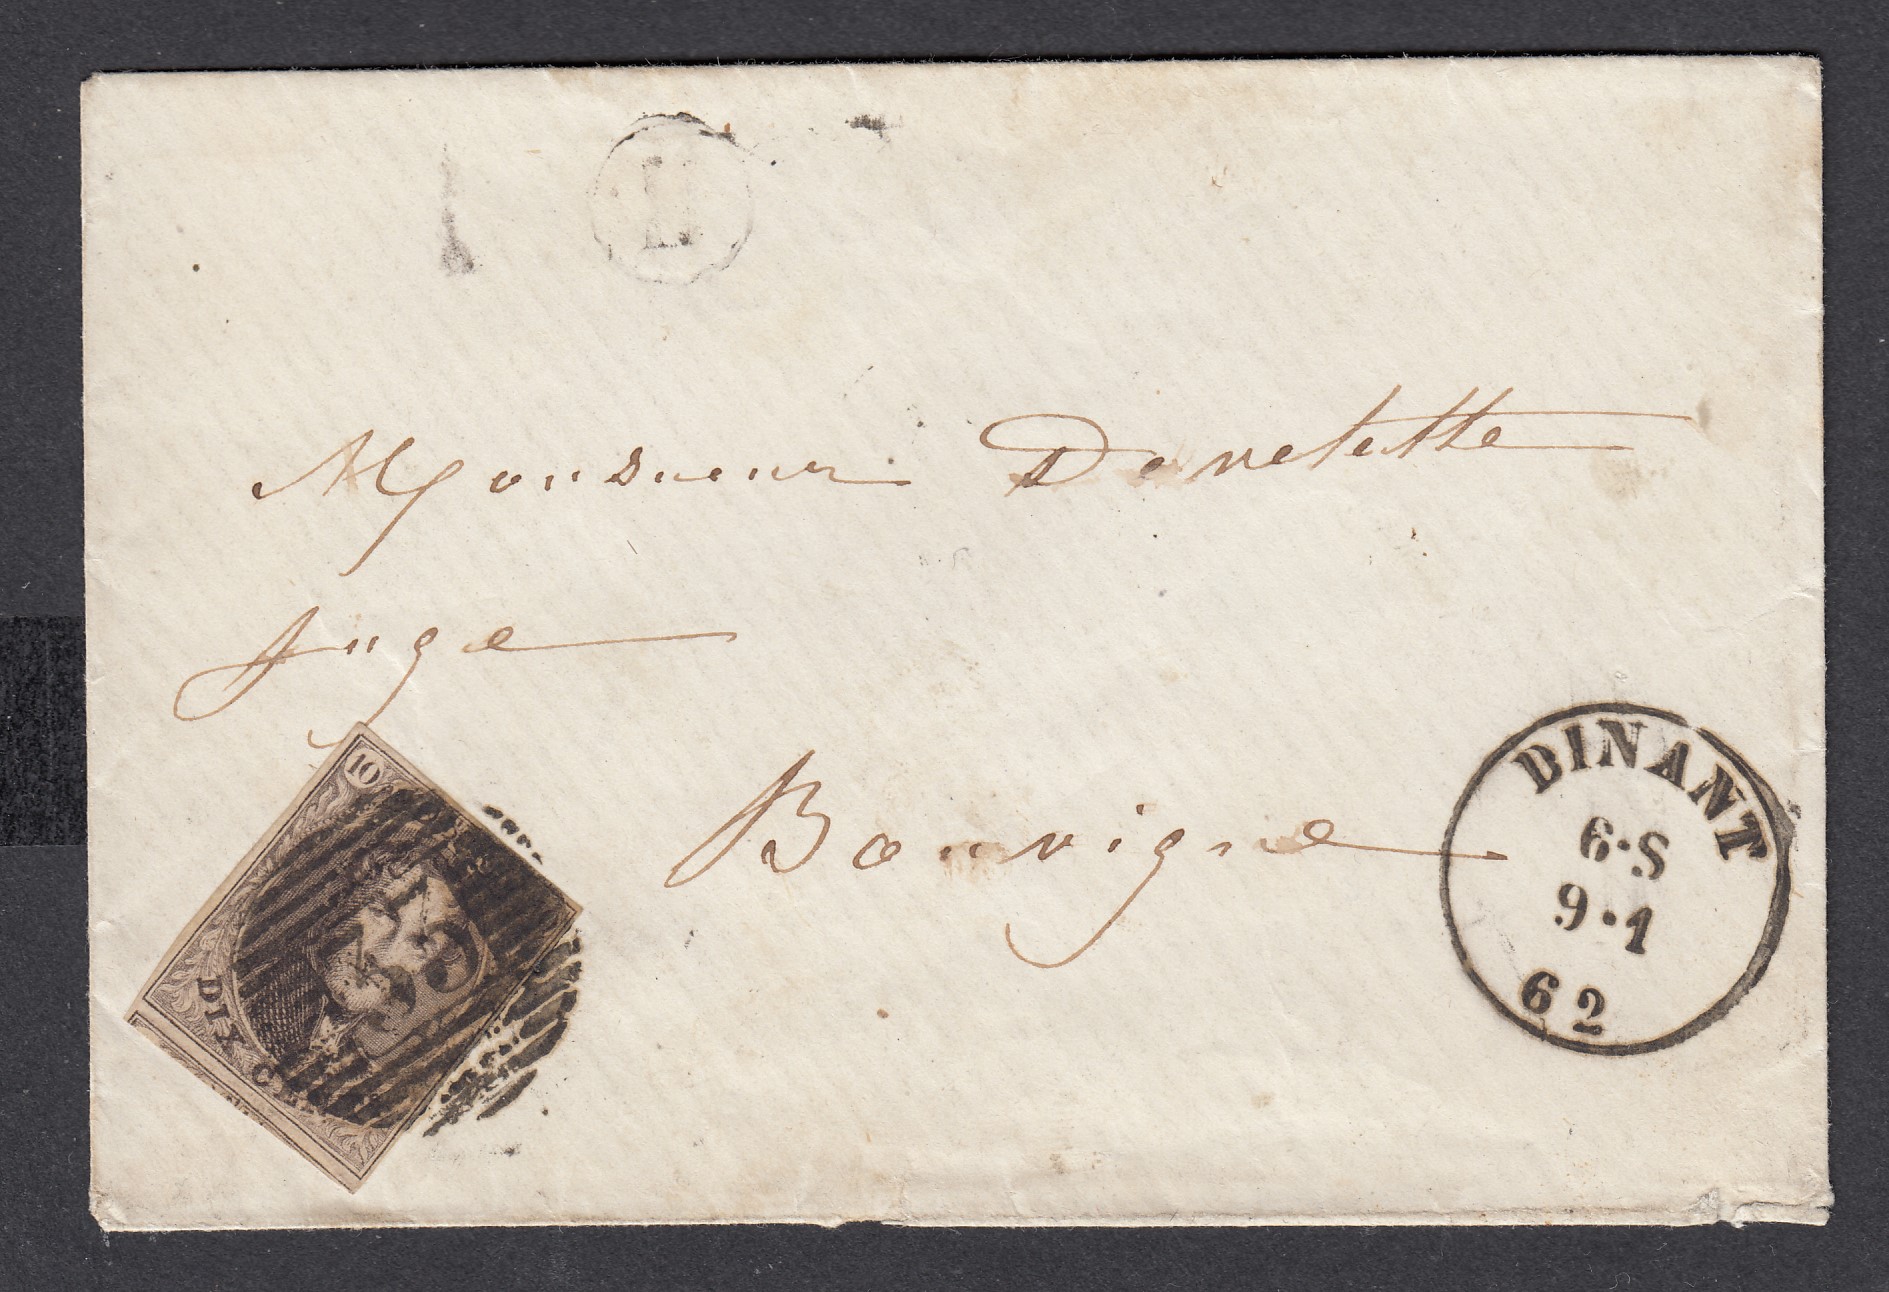 Monsieur
Juge
Bouvigne
DINANT
6·S
9·1
62
10
DIX